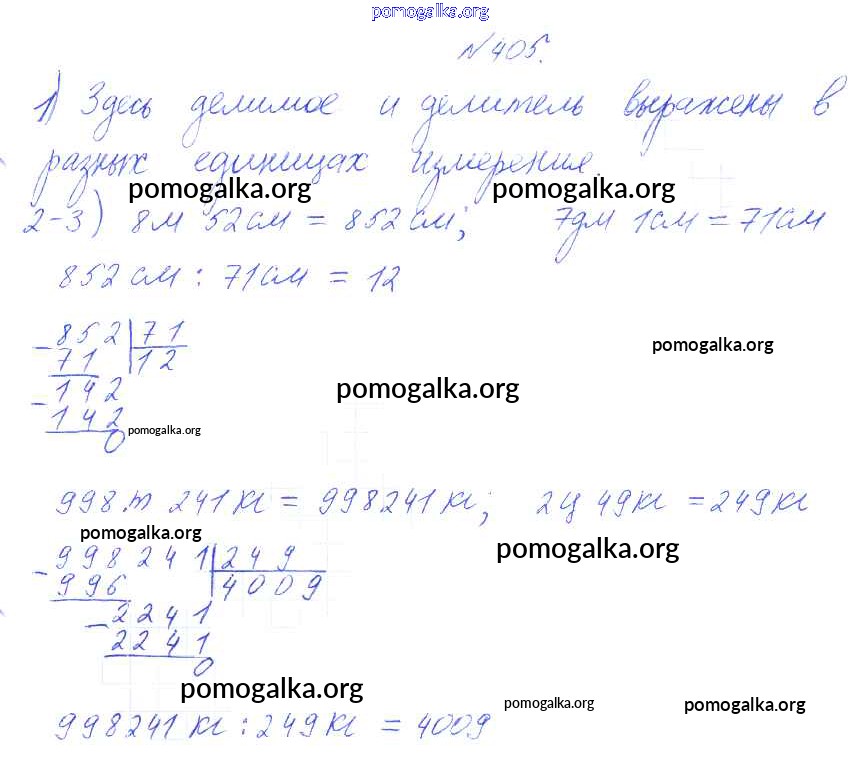 pomogalka.org
№405.
1) Здесь делимое и делитель выражены в
разных единицах измерения.
pomogalka.org pomogalka.org
2-3) 8м 52см = 852см; 7дм 1см = 71см
852см : 71см = 12
- 852 | 71
71 | 12
pomogalka.org
- 142
pomogalka.org
142
pomogalka.org
0
998т 241кг = 998241кг; 2ц 49кг = 249кг
pomogalka.org
- 998241 | 249
pomogalka.org
996 | 4009
- 2241
2241
0
pomogalka.org
pomogalka.org pomogalka.org
998241кг : 249кг = 4009